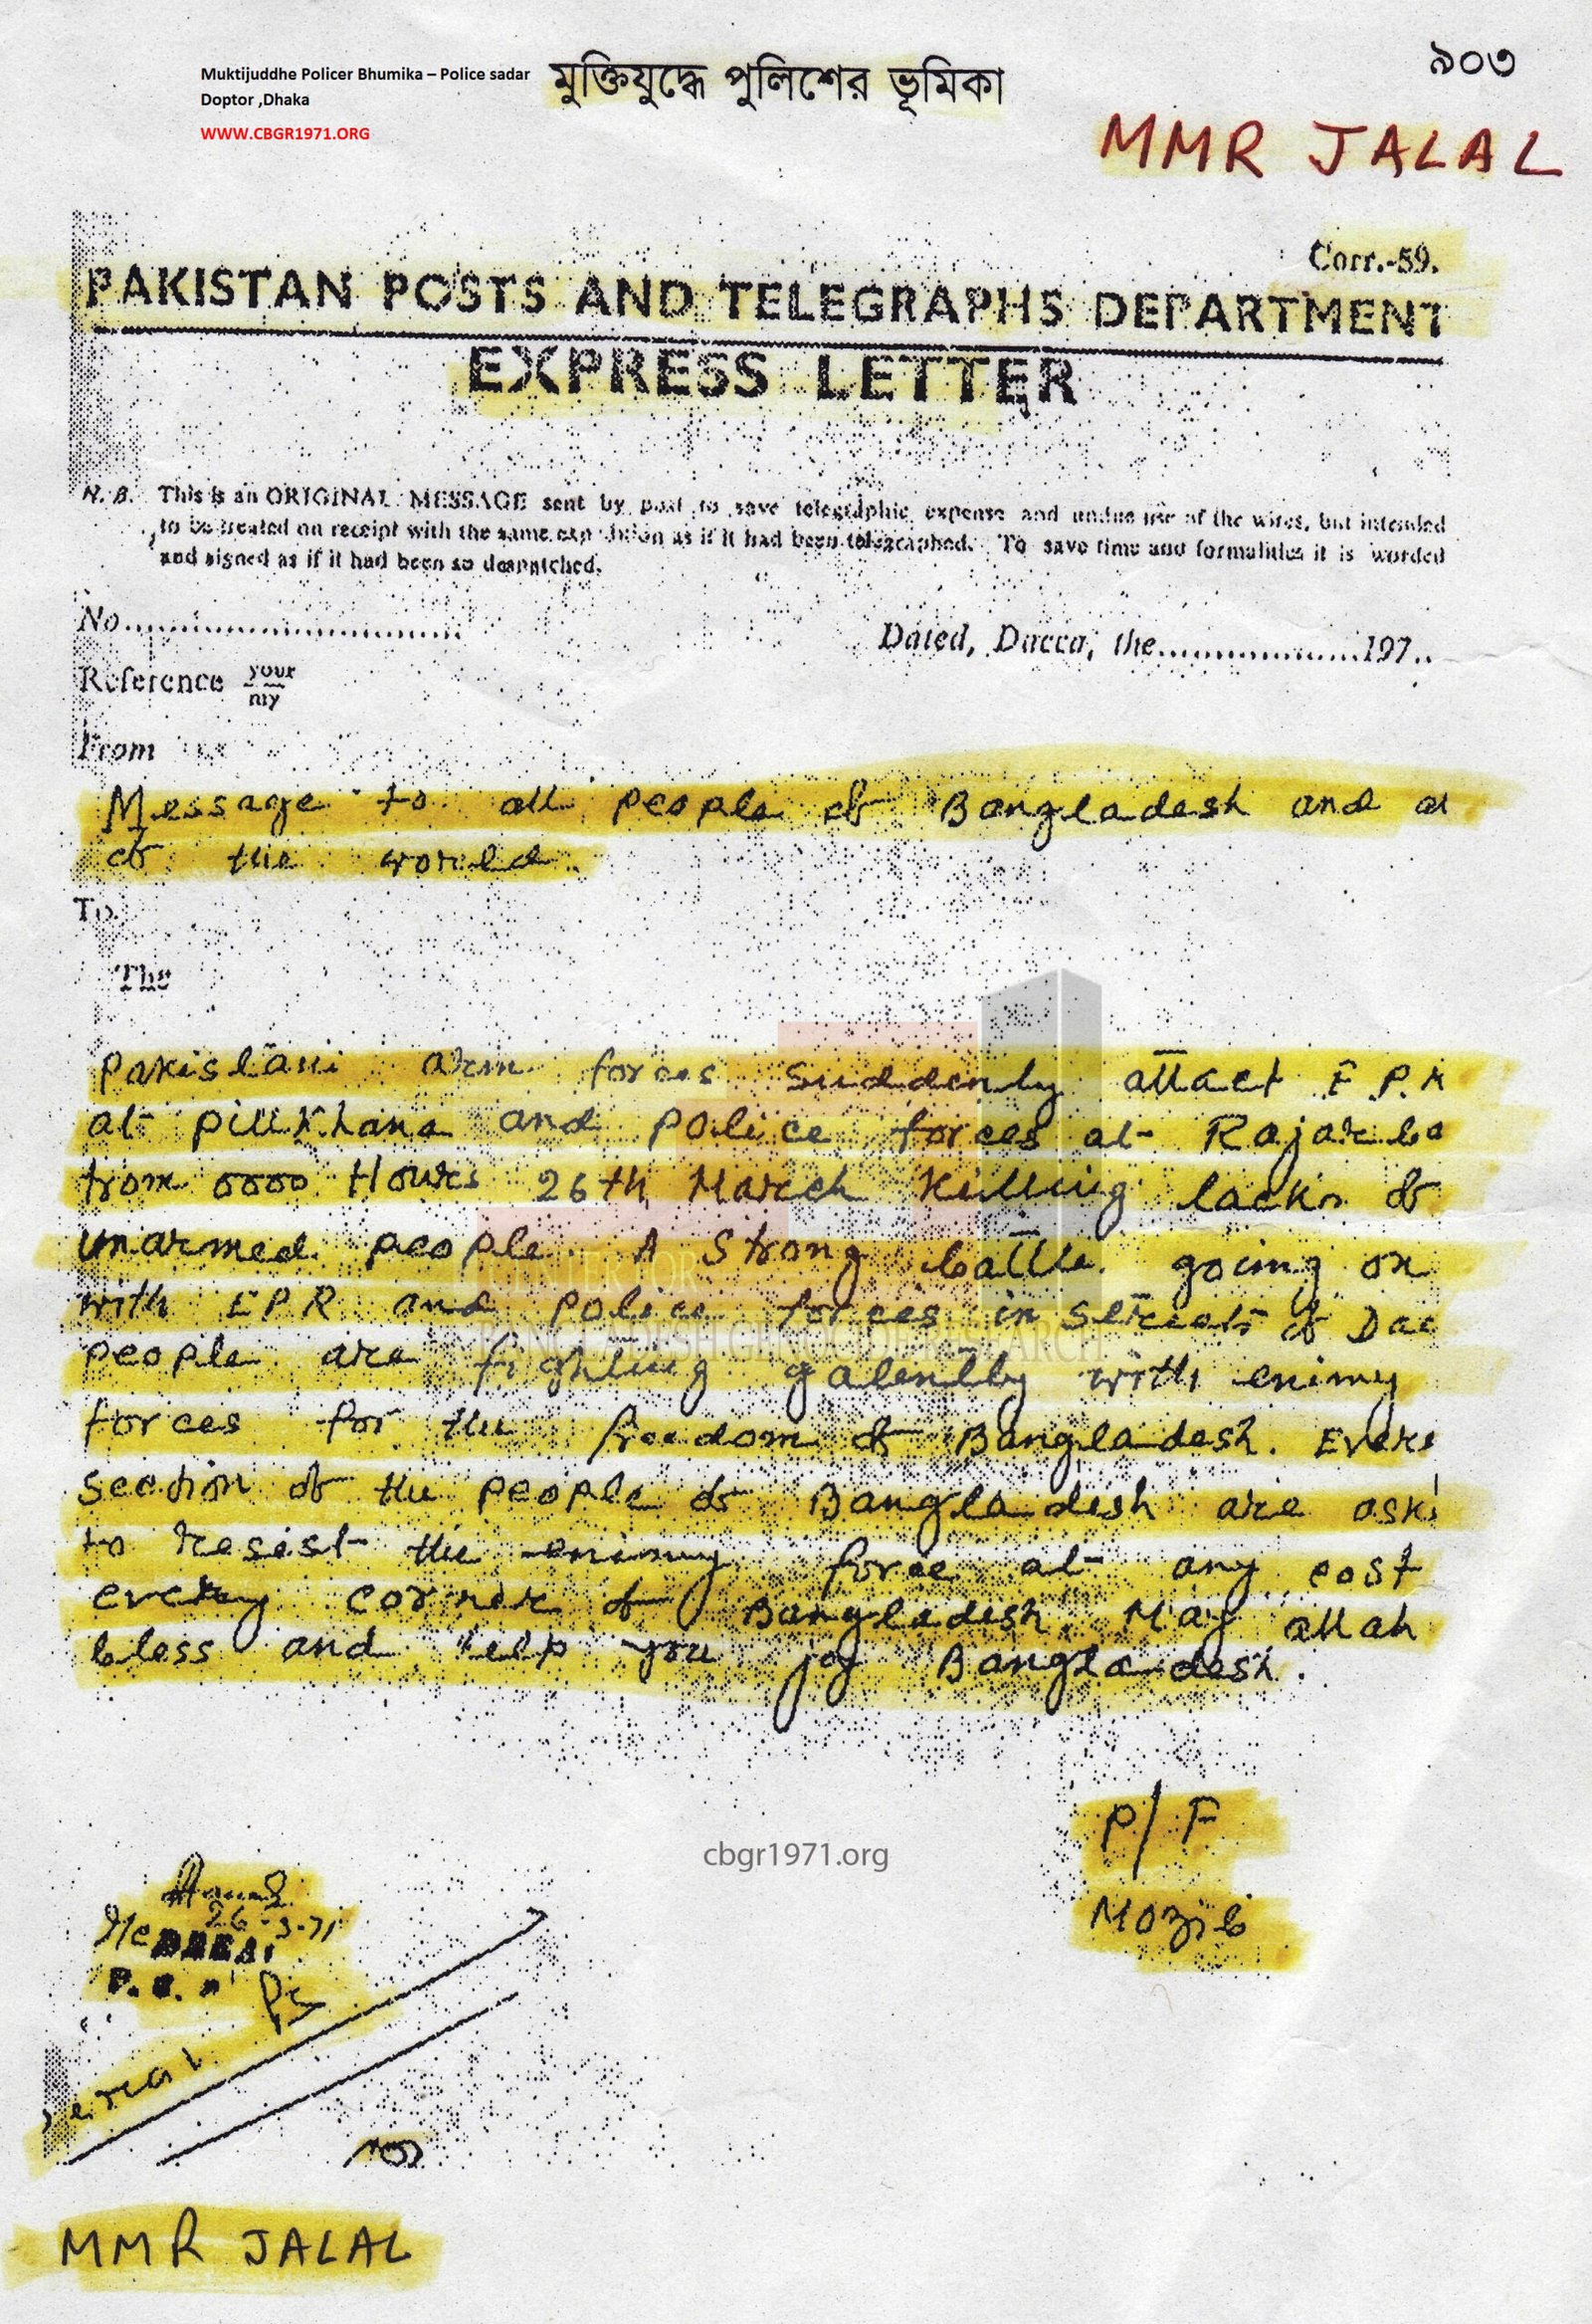 Muktijuddhe Policer Bhumika – Police sadar
Doptor ,Dhaka
WWW.CBGR1971.ORG
মুক্তিযুদ্ধে পুলিশের ভূমিকা
৯০৩
MMR JALAL
Corr.-59.
PAKISTAN POSTS AND TELEGRAPHS DEPARTMENT
EXPRESS LETTER
N. B. This is an ORIGINAL MESSAGE sent by post to save telegraphic expense and undue use of the wires, but intended
to be treated on receipt with the same as if it had been telegraphed. To save time and formalities it is worded
and signed as if it had been so despatched.
No..............................
Dated, Dacca, the..................197..
Reference your
my
From
Message to all people of Bangladesh and
of the world.
To.
The
Pakistani arm forces suddenly attact E P R
at Pillkhana and Police forces at Rajarba
from 0000 Hours 26th March killing lacks of
unarmed people. A strong battle going on
with EPR and Police forces in Streets of Dac
people are fighting galently with enimy
forces for the freedom of Bangladesh. Every
section of the people of Bangladesh are aski
to resist the enimy force at any cost
every corner of Bangladesh. May allah
bless and help you joy Bangladesh.
P/F
Mozib
26-3-71
PS
CENTER FOR
BANGLADESH GENOCIDE RESEARCH
cbgr1971.org
MMR JALAL